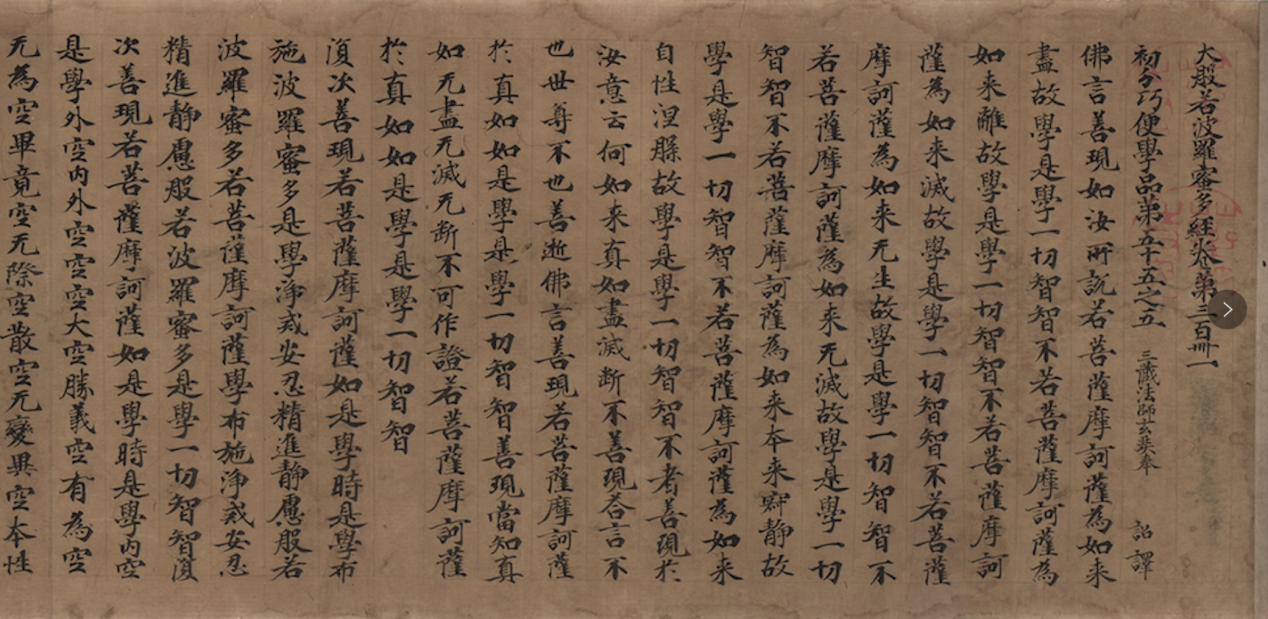 大般若波羅蜜多經卷第三百卌一
初分巧便學品第五十五之五　三藏法師玄奘奉　詔譯
佛言善現如汝所說若菩薩摩訶薩為如来
盡故學是學一切智智不若菩薩摩訶薩為
如来離故學是學一切智智不若菩薩摩訶
薩為如来滅故學是學一切智智不若菩薩
摩訶薩為如来无生故學是學一切智智不
若菩薩摩訶薩為如来无滅故學是學一切
智智不若菩薩摩訶薩為如来本来寂静故
學是學一切智智不若菩薩摩訶薩為如来
自性涅槃故學是學一切智智不者善現於
汝意云何如来真如盡滅断不善現荅言不
也世尊不也善逝佛言善現若菩薩摩訶薩
於真如如是學是學一切智智善現當知真
如无盡无滅无断不可作證若菩薩摩訶薩
於真如如是學是學一切智智
復次善現若菩薩摩訶薩如是學時是學布
施波羅蜜多是學淨戒安忍精進静慮般若
波羅蜜多若菩薩摩訶薩學布施淨戒安忍
精進静慮般若波羅蜜多是學一切智智復
次善現若菩薩摩訶薩如是學時是學内空
是學外空内外空空空大空勝義空有為空
无為空畢竟空无際空散空无變異空本性